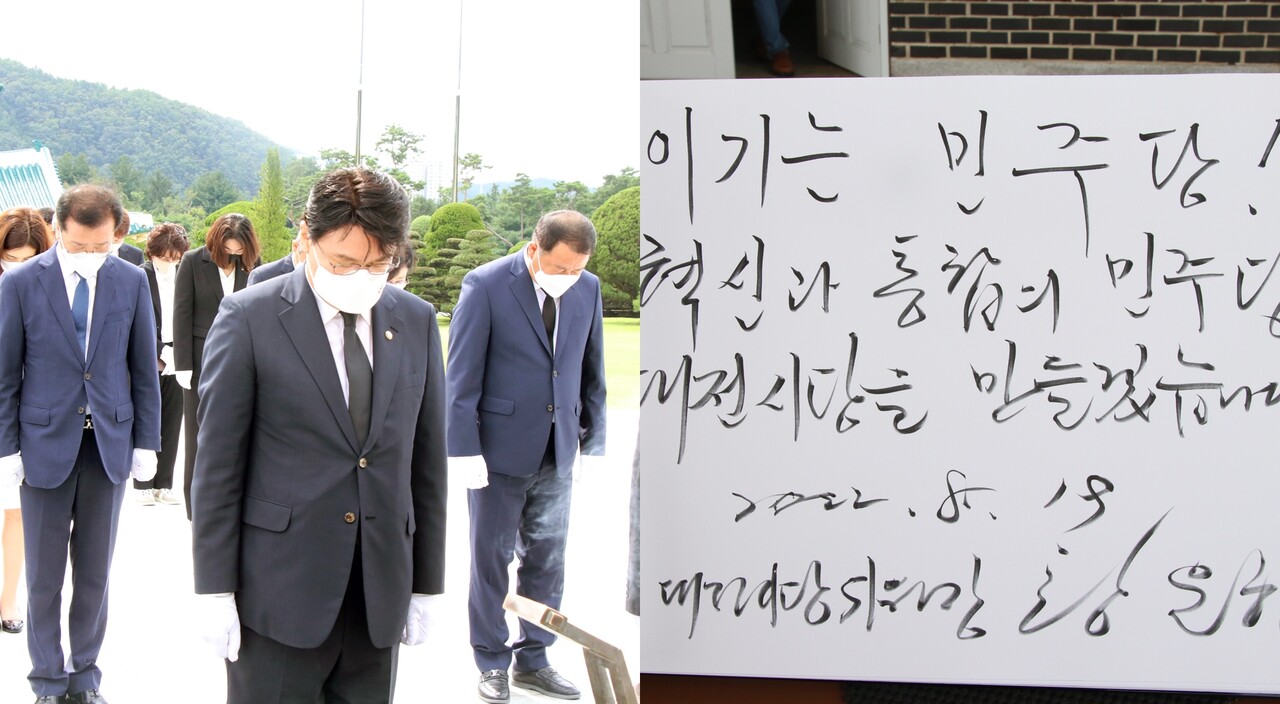 이기는 민주당!
혁신과 통합의 민주당
대전시당을 만들겠습니다
2022. 8. 19
대전시당위원장 황운하